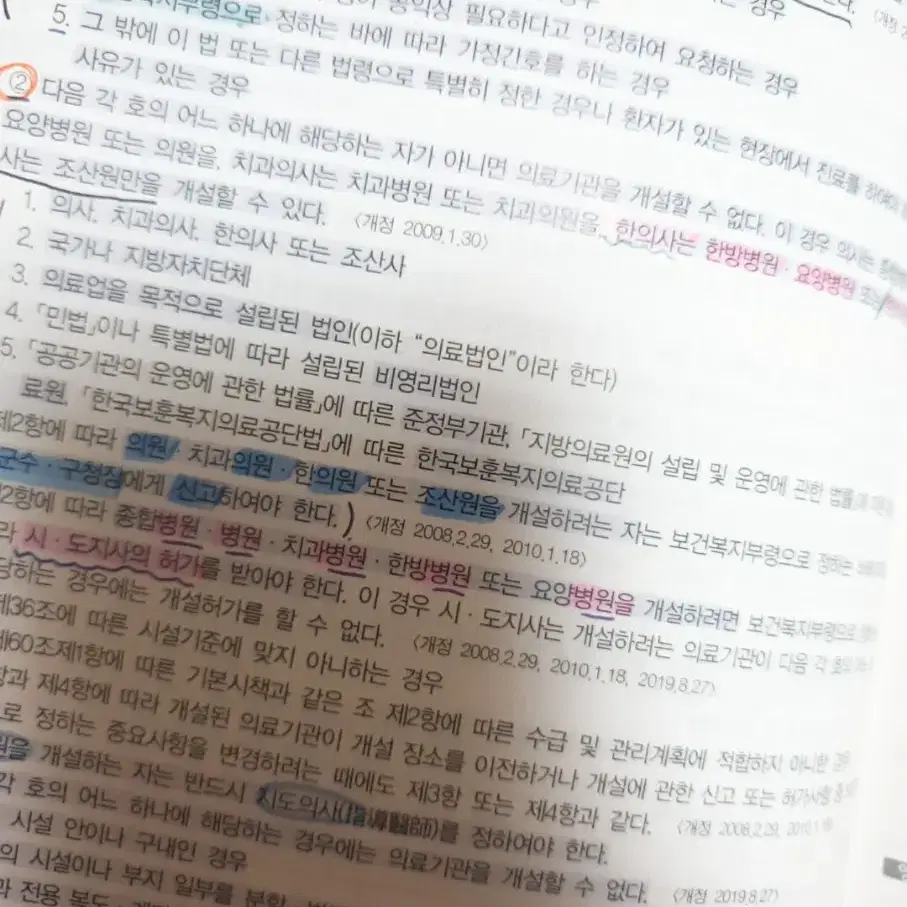 공익상 필요하다고 인정하여 요청하는 경우
복지부령으로 정하는 바에 따라 가정간호를 하는 경우
5. 그 밖에 이 법 또는 다른 법령으로 특별히 정한 경우나 환자가 있는 현장에서 진료를 하여야
사유가 있는 경우
② 다음 각 호의 어느 하나에 해당하는 자가 아니면 의료기관을 개설할 수 없다. 이 경우 의사는
요양병원 또는 의원을, 치과의사는 치과병원 또는 치과의원을, 한의사는 한방병원·요양병원 또는
사는 조산원만을 개설할 수 있다. 〈개정 2009.1.30〉
1. 의사, 치과의사, 한의사 또는 조산사
2. 국가나 지방자치단체
3. 의료업을 목적으로 설립된 법인(이하 “의료법인”이라 한다)
4. 「민법」이나 특별법에 따라 설립된 비영리법인
5. 「공공기관의 운영에 관한 법률」에 따른 준정부기관, 「지방의료원의 설립 및 운영에 관한 법률」에
료원, 「한국보훈복지의료공단법」에 따른 한국보훈복지의료공단
제2항에 따라 의원·치과의원·한의원 또는 조산원을 개설하려는 자는 보건복지부령으로 정하는
군수·구청장에게 신고하여야 한다. 〈개정 2008.2.29, 2010.1.18〉
제2항에 따라 종합병원·병원·치과병원·한방병원 또는 요양병원을 개설하려면 보건복지부령으로
라 시·도지사의 허가를 받아야 한다. 이 경우 시·도지사는 개설하려는 의료기관이 다음 각 호의
당하는 경우에는 개설허가를 할 수 없다. 〈개정 2008.2.29, 2010.1.18, 2019.8.27〉
제36조에 따른 시설기준에 맞지 아니하는 경우
제60조제1항에 따른 기본시책과 같은 조 제2항에 따른 수급 및 관리계획에 적합하지 아니한 경우
항과 제4항에 따라 개설된 의료기관이 개설 장소를 이전하거나 개설에 관한 신고 또는 허가사항
로 정하는 중요사항을 변경하려는 때에도 제3항 또는 제4항과 같다. 〈개정 2008.2.29, 2010.1.18〉
원을 개설하는 자는 반드시 지도의사(指導醫師)를 정하여야 한다.
각 호의 어느 하나에 해당하는 경우에는 의료기관을 개설할 수 없다. 〈개정 2019.8.27〉
시설 안이나 구내인 경우
의 시설이나 부지 일부를 분할
전용 복도